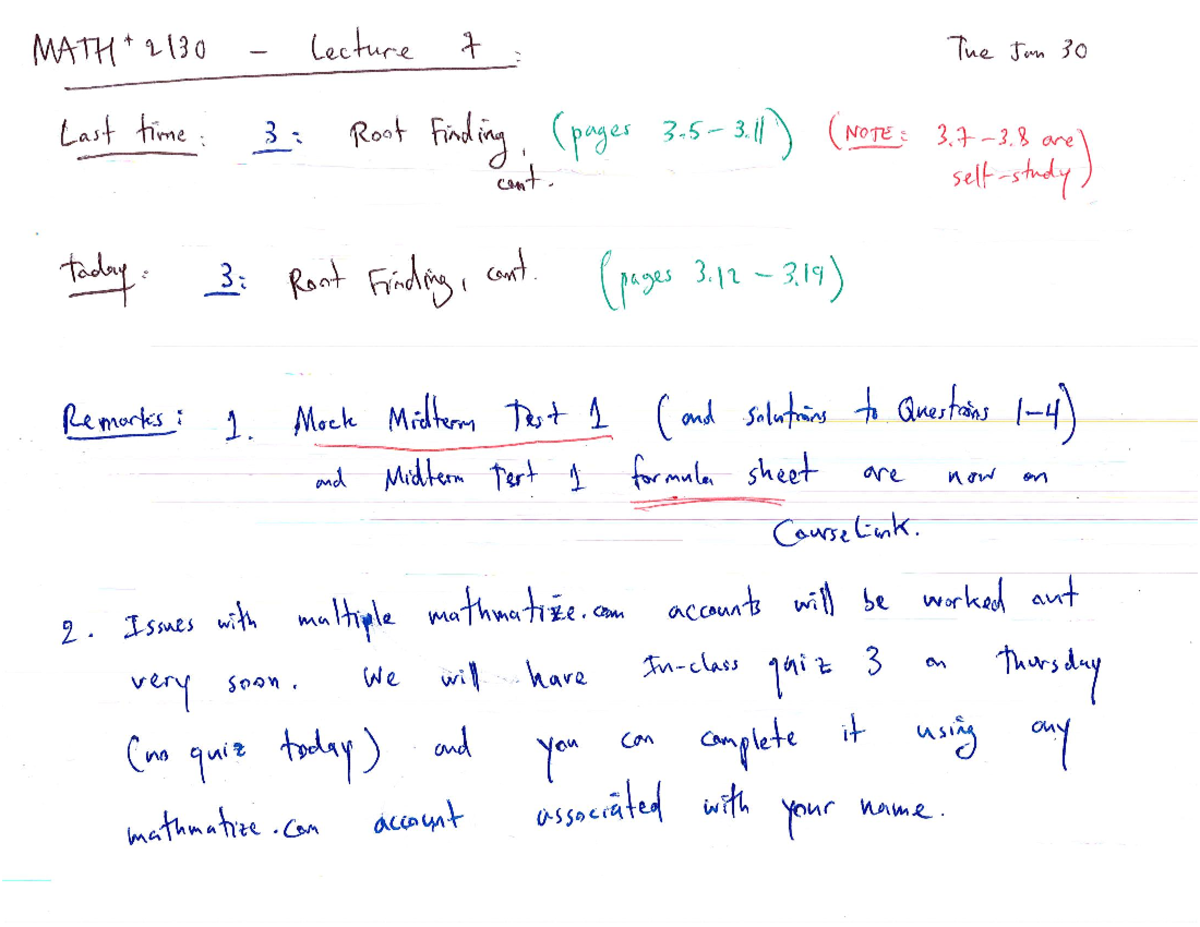 MATH*2130 - Lecture 7 : Tue Jan 30
Last time : 3 : Root Finding, (pages 3.5 - 3.11) (NOTE : 3.7 - 3.8 are
cont. self-study)
Today : 3 : Root Finding, cont. (pages 3.12 - 3.19)
Remarks : 1. Mock Midterm Test 1 (and solutions to Questions 1-4)
and Midterm Test 1 formula sheet are now on
CourseLink.
2. Issues with multiple mathmatize.com accounts will be worked out
very soon. We will have In-class quiz 3 on Thursday
(no quiz today) and you can complete it using any
mathmatize.com account associated with your name.